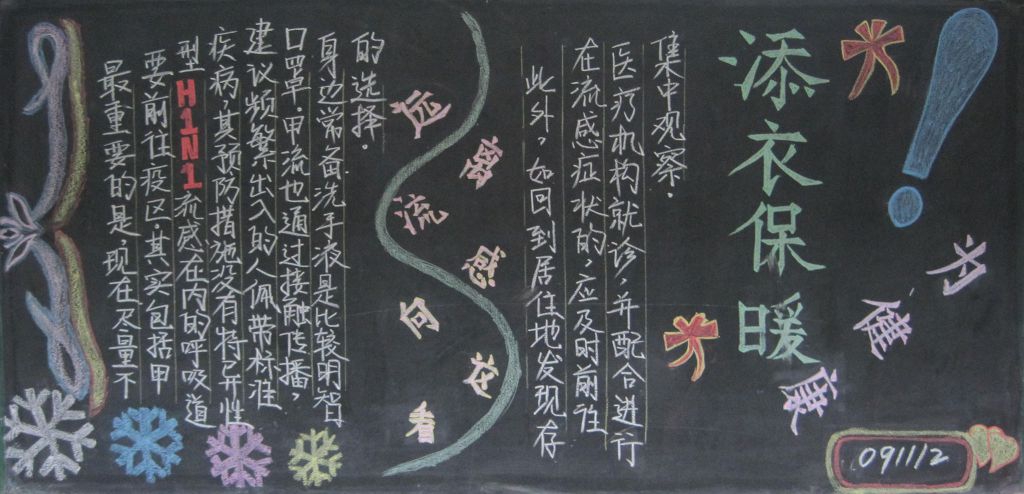 最重要的是,现在尽量不
要前往疫区,其实包括甲
型H1N1流感在内的呼吸道
疾病,其预防措施没有特异性
建议频繁出入的人佩带标准
口罩.甲流也通过接触传播,
身边常备洗手液是比较明智
的选择.
远离流感向看
此外,如回到居住地发现存
在流感症状的,应及时前往
医疗机构就诊,并配合进行
集中观察.
添衣保暖
为健康
091112